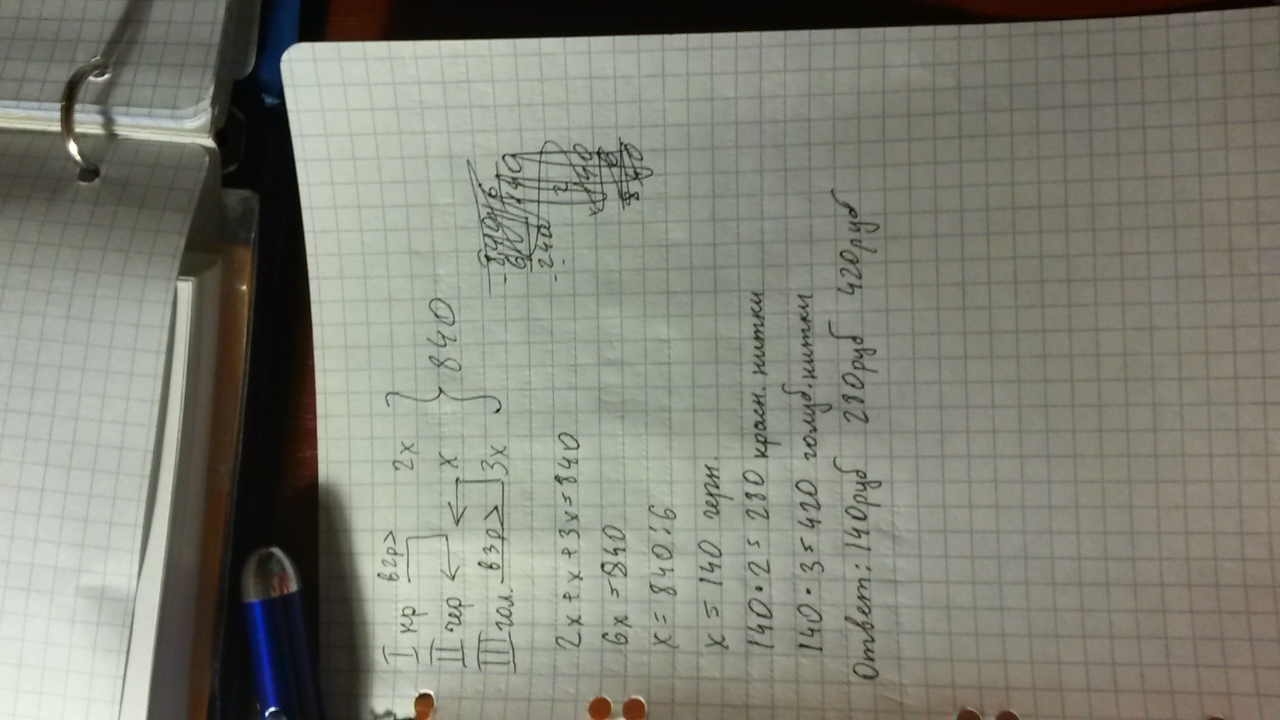 I кр в 2р> 2x
II чер ← x } 840
III гол. в 3р> 3x
2x + x + 3x = 840
6x = 840
x = 840 : 6
x = 140 черн.
140 · 2 = 280 красн. нитки
140 · 3 = 420 голуб. нитки
Ответ: 140руб 280руб 420руб